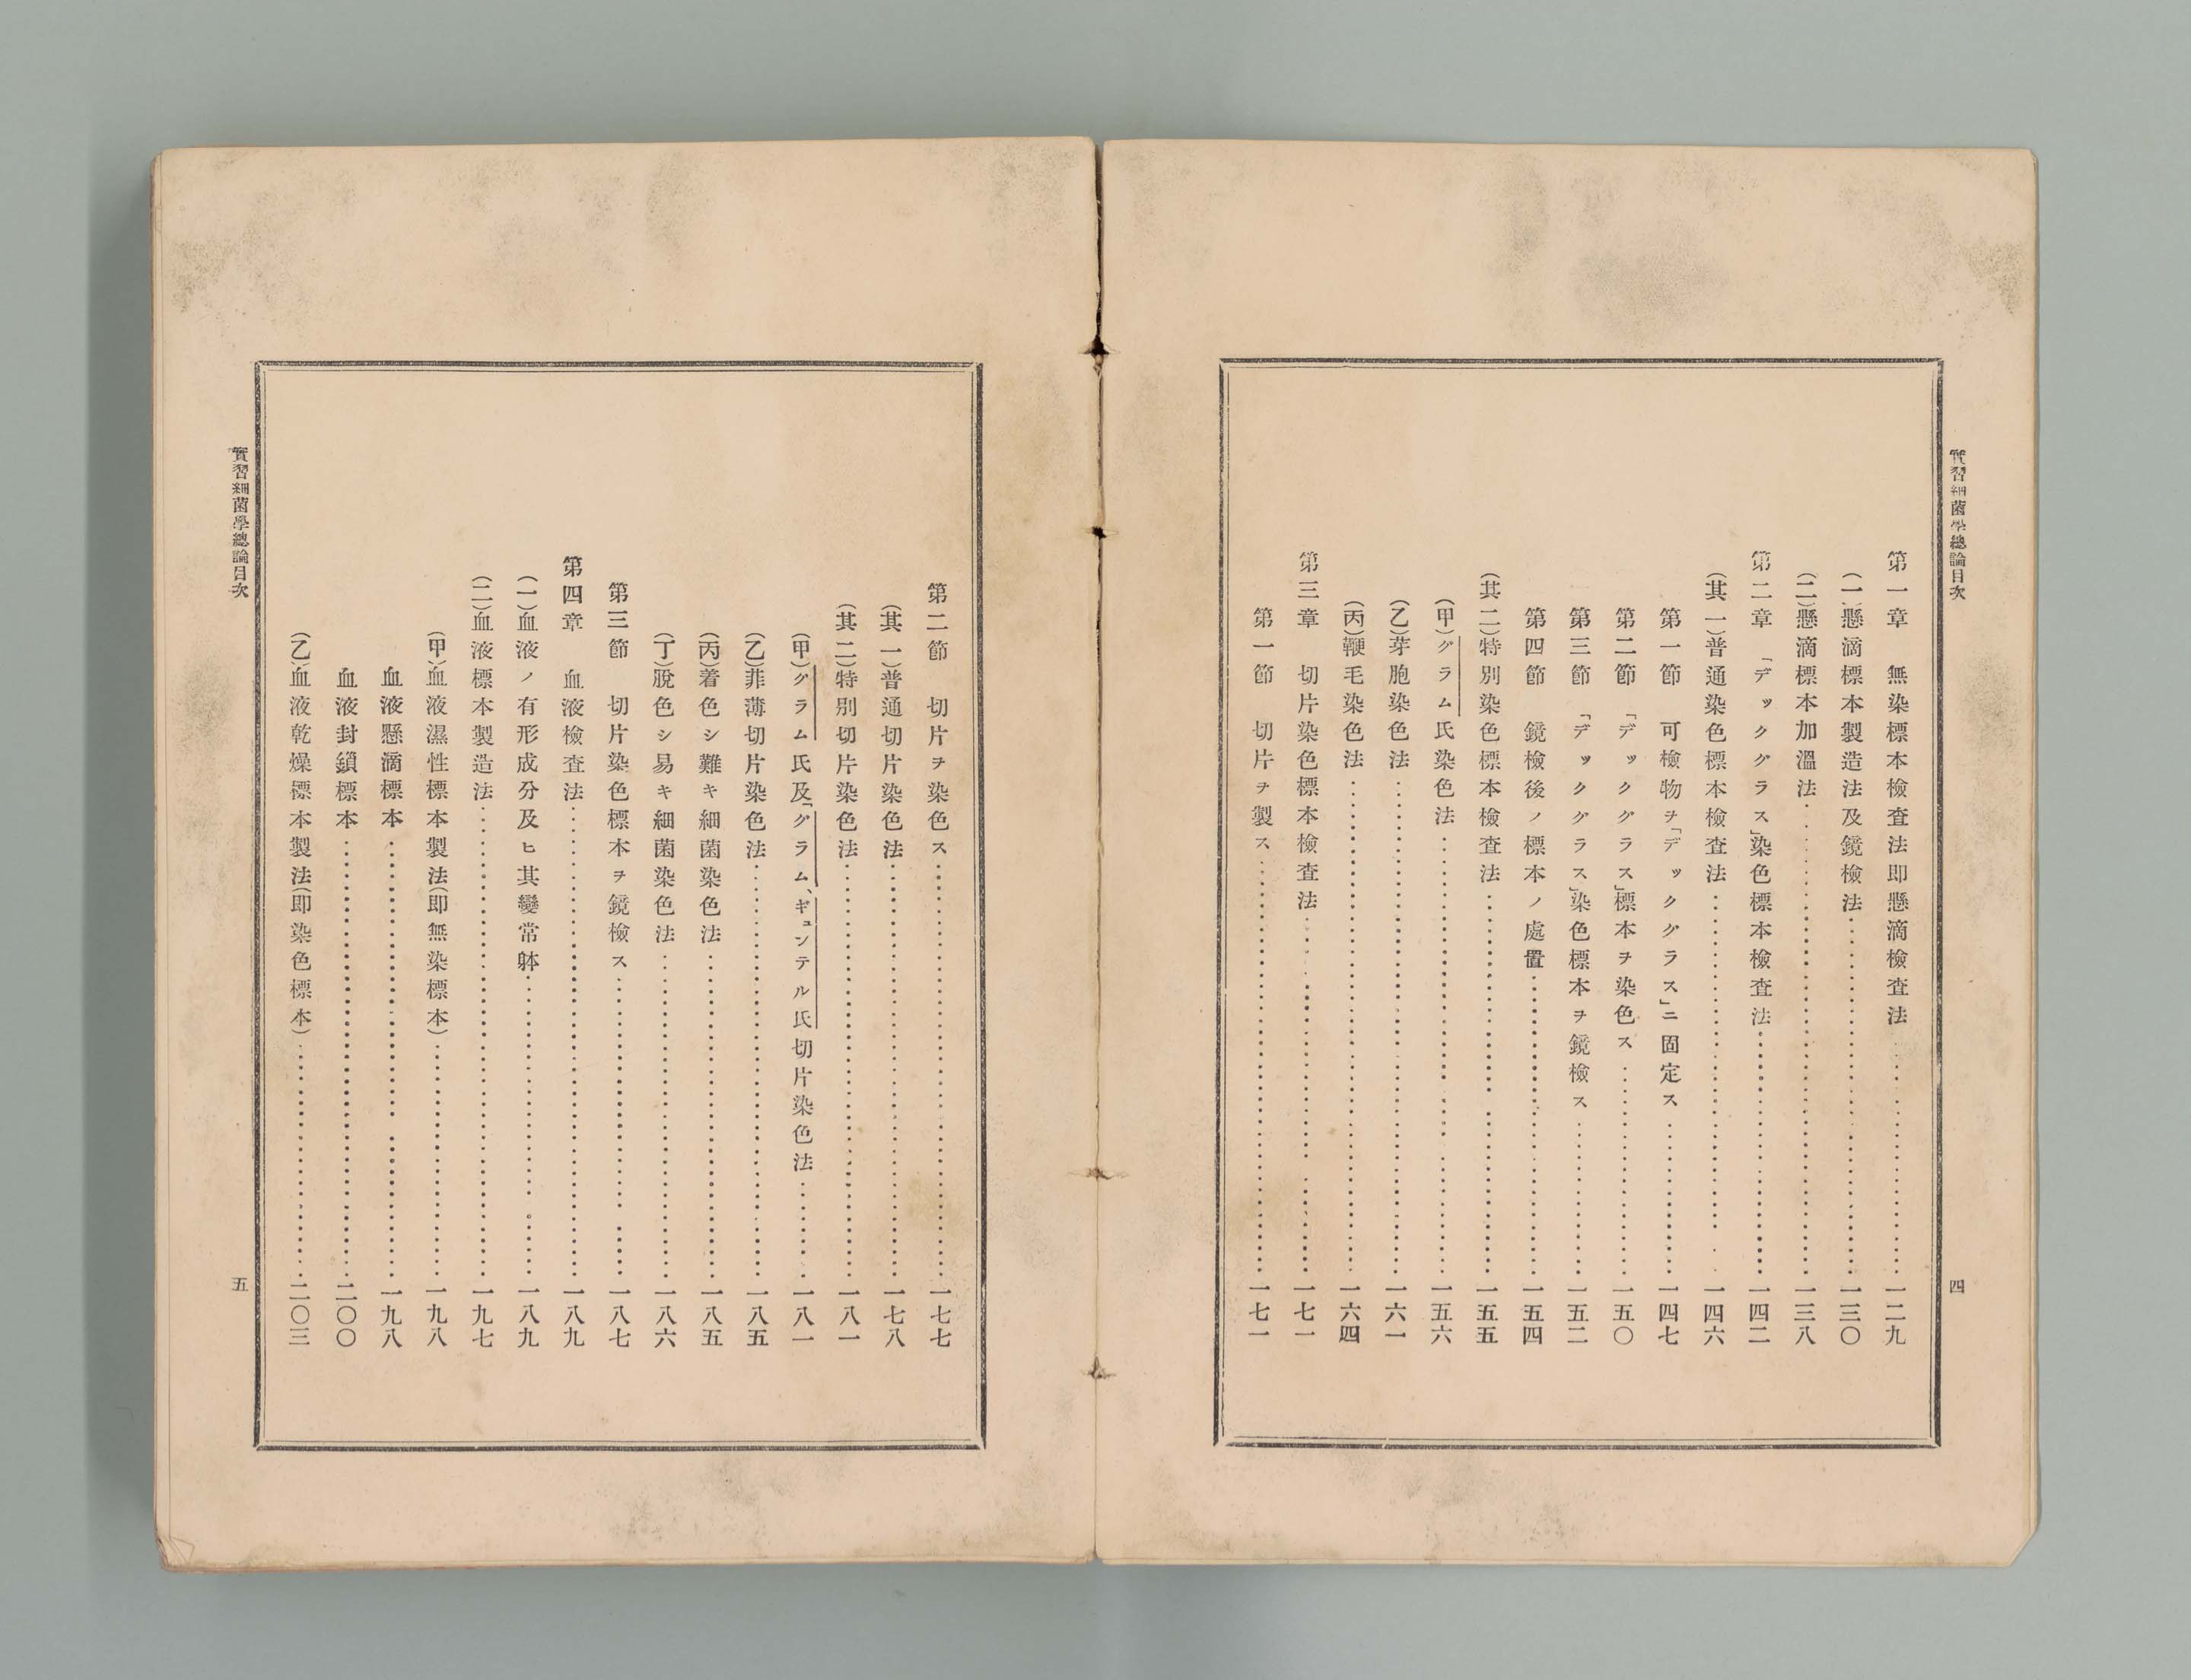 實習細菌學總論目次
四
第一章　無染標本檢査法即懸滴檢査法…………一二九
(一)懸滴標本製造法及鏡檢法…………一三〇
(二)懸滴標本加溫法…………一三八
第二章　「デックグラス」染色標本檢査法…………一四二
(其一)普通染色標本檢査法…………一四六
第一節　可檢物ヲ「デックグラス」ニ固定ス…………一四七
第二節　「デックグラス」標本ヲ染色ス…………一五〇
第三節　「デックグラス」染色標本ヲ鏡檢ス…………一五二
第四節　鏡檢後ノ標本ノ處置…………一五四
(其二)特別染色標本檢査法…………一五五
(甲)グラム氏染色法…………一五六
(乙)芽胞染色法…………一六一
(丙)鞭毛染色法…………一六四
第三章　切片染色標本檢査法…………一七一
第一節　切片ヲ製ス…………一七一
第二節　切片ヲ染色ス…………一七七
(其一)普通切片染色法…………一七八
(其二)特別切片染色法…………一八一
(甲)グラム氏及「グラム、ギュンテル氏切片染色法…………一八一
(乙)菲薄切片染色法…………一八五
(丙)着色シ難キ細菌染色法…………一八五
(丁)脫色シ易キ細菌染色法…………一八六
第三節　切片染色標本ヲ鏡檢ス…………一八七
第四章　血液檢査法…………一八九
(一)血液ノ有形成分及ヒ其變常躰…………一八九
(二)血液標本製造法…………一九七
(甲)血液濕性標本製法(即無染標本)…………一九八
血液懸滴標本…………一九八
血液封鎖標本…………二〇〇
(乙)血液乾燥標本製法(即染色標本)…………二〇三
實習細菌學總論目次
五